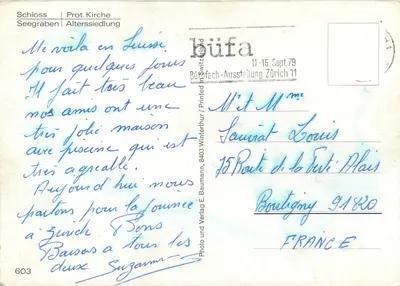 Schloss | Prot. Kirche
Seegräben | Alterssiedlung
Me voila en Suisse
pour quelques jours
Il fait très beau
nos amis ont une
très jolie maison
avec piscine qui est
très agréable.
Aujourd'hui nous
partons pour la journée
à Zurich Bons
Baisers à tous les
deux Suzanne
603
Photo und Verlag E. Baumann, 8403 Winterthur / Printed in Switzerland
büfa
11-15. Sept. 79
Bürofach-Ausstellung Zürich 11
Mr et Mme
Louis
75 Route de la Ferté Alais
Boutigny 91820
FRANCE